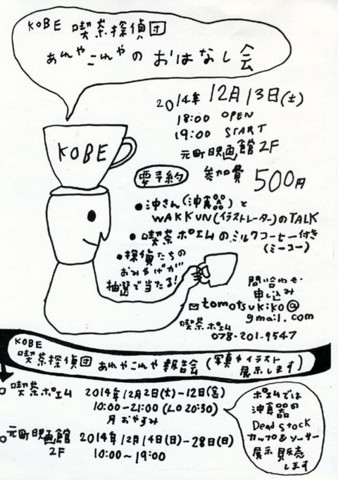 KOBE 喫茶探偵団
あれやこれやの おはなし会
2014年 12月13日(土)
18:00 OPEN
19:00 START
元町映画館 2F
要予約 参加費 500円
KOBE
・沖さん(沖食品)と
WAKKUN(イラストレーター)のTALK
・喫茶ポエムのミルクコーヒー付き
(ミーコー)
・探偵たちの
おみやげが
抽選で当たる!
問い合わせ・
申し込み
✉tomotsukiko@
gmail.com
喫茶ポエム
078-201-9547
KOBE
喫茶探偵団 あれやこれや 報告会 (写真やイラスト
展示します)
喫茶ポエム 2014年12月2日(火)-12日(金)
10:00-21:00 (LO 20:30)
月おやすみ
元町映画館 2014年12月14日(日)-28日(日)
2F 10:00~19:00
ポエムでは
沖食品の
Dead Stock
カップ&ソーサー
展示販売
します